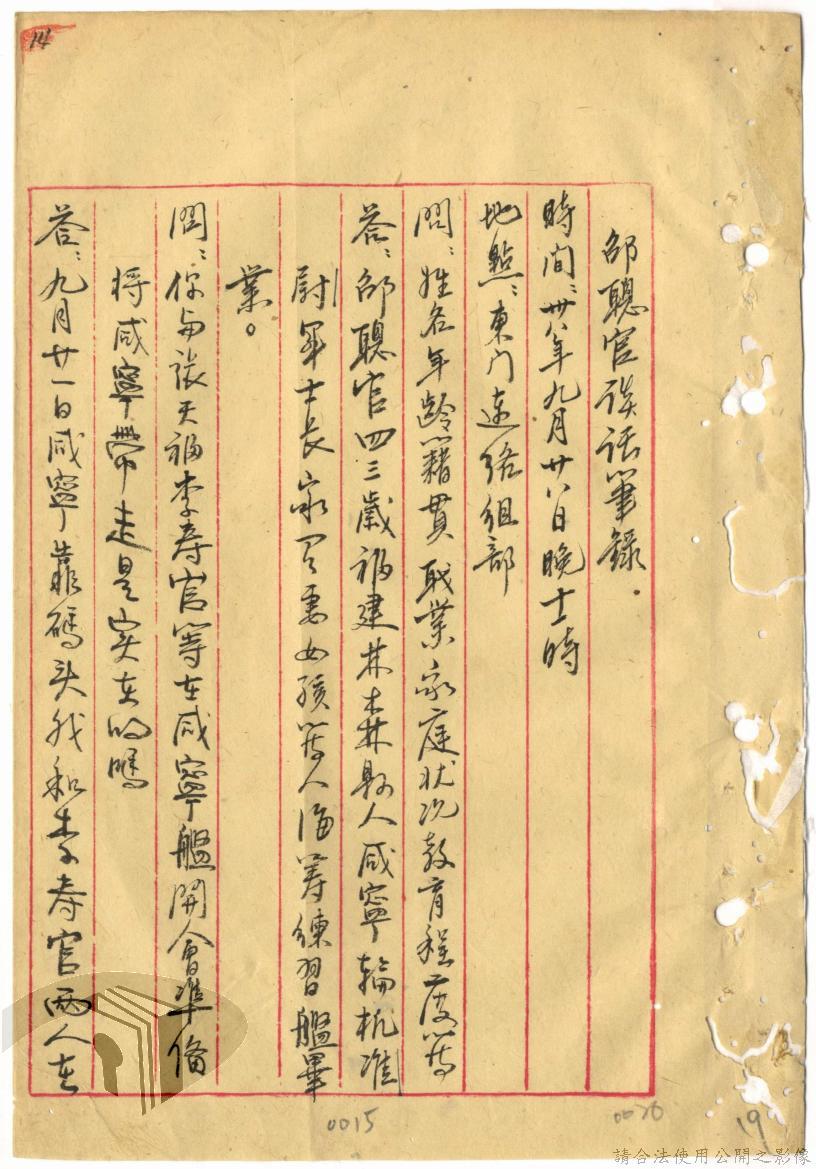 14
邵聰官談話筆錄．
時間：卅八年九月廿八日晚十一時
地點：東门連絡组部
問：姓名年齡籍貫职業家庭状况教育程度等
答：邵聰官四三歲福建林森縣人咸寧輪机准
尉軍士長家有妻女孩等人海籌練習艦畢
業。
問：你與張天福李寿官等在咸寧艦開會準俻
将咸寧帶走是实在的嗎
答：九月廿一日咸寧靠碼头我和李寿官兩人在
0015
0026
19
請合法使用公開之影像